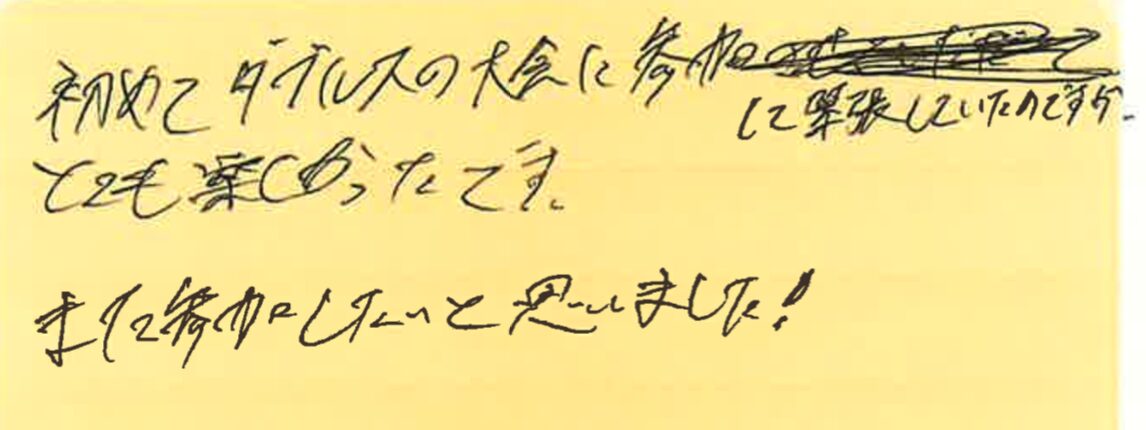 初めてダブルスの大会に参加
して緊張していたのですが、
とても楽しかったです。
また参加したいと思いました!